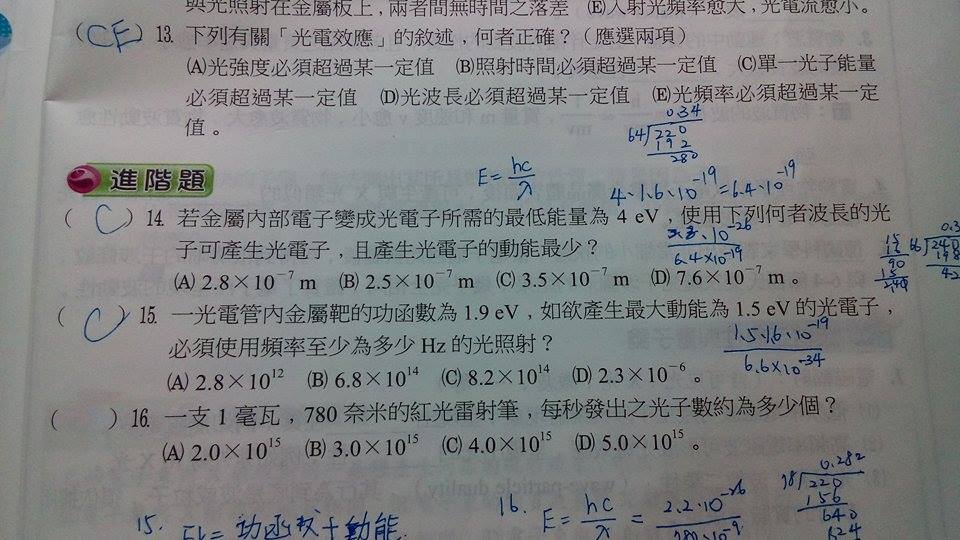 與光照射在金屬板上，兩者間無時間之落差 (E)入射光頻率愈大，光電流愈小。
(CE) 13. 下列有關「光電效應」的敘述，何者正確？（應選兩項）
(A)光強度必須超過某一定值 (B)照射時間必須超過某一定值 (C)單一光子能量
必須超過某一定值 (D)光波長必須超過某一定值 (E)光頻率必須超過某一定
值。
0.34
64 220
192
280
進階題
E = hc/λ
4·1.6·10⁻¹⁹ = 6.4·10⁻¹⁹
( C ) 14. 若金屬內部電子變成光電子所需的最低能量為 4 eV，使用下列何者波長的光
子可產生光電子，且產生光電子的動能最少？
10⁻²⁶
6.4×10⁻¹⁹
(A) 2.8×10⁻⁷ m (B) 2.5×10⁻⁷ m (C) 3.5×10⁻⁷ m (D) 7.6×10⁻⁷ m。
( C ) 15. 一光電管內金屬靶的功函數為 1.9 eV，如欲產生最大動能為 1.5 eV的光電子，
必須使用頻率至少為多少 Hz 的光照射？
1.5·1.6·10⁻¹⁹
6.6×10⁻³⁴
(A) 2.8×10¹² (B) 6.8×10¹⁴ (C) 8.2×10¹⁴ (D) 2.3×10⁻⁶。
( ) 16. 一支 1 毫瓦，780 奈米的紅光雷射筆，每秒發出之光子數約為多少個？
(A) 2.0×10¹⁵ (B) 3.0×10¹⁵ (C) 4.0×10¹⁵ (D) 5.0×10¹⁵。
0.282
78 220
156
640
624
16. E = hc/λ = 2.2·10⁻²⁶/780·10⁻⁹
15. = 功函數+動能